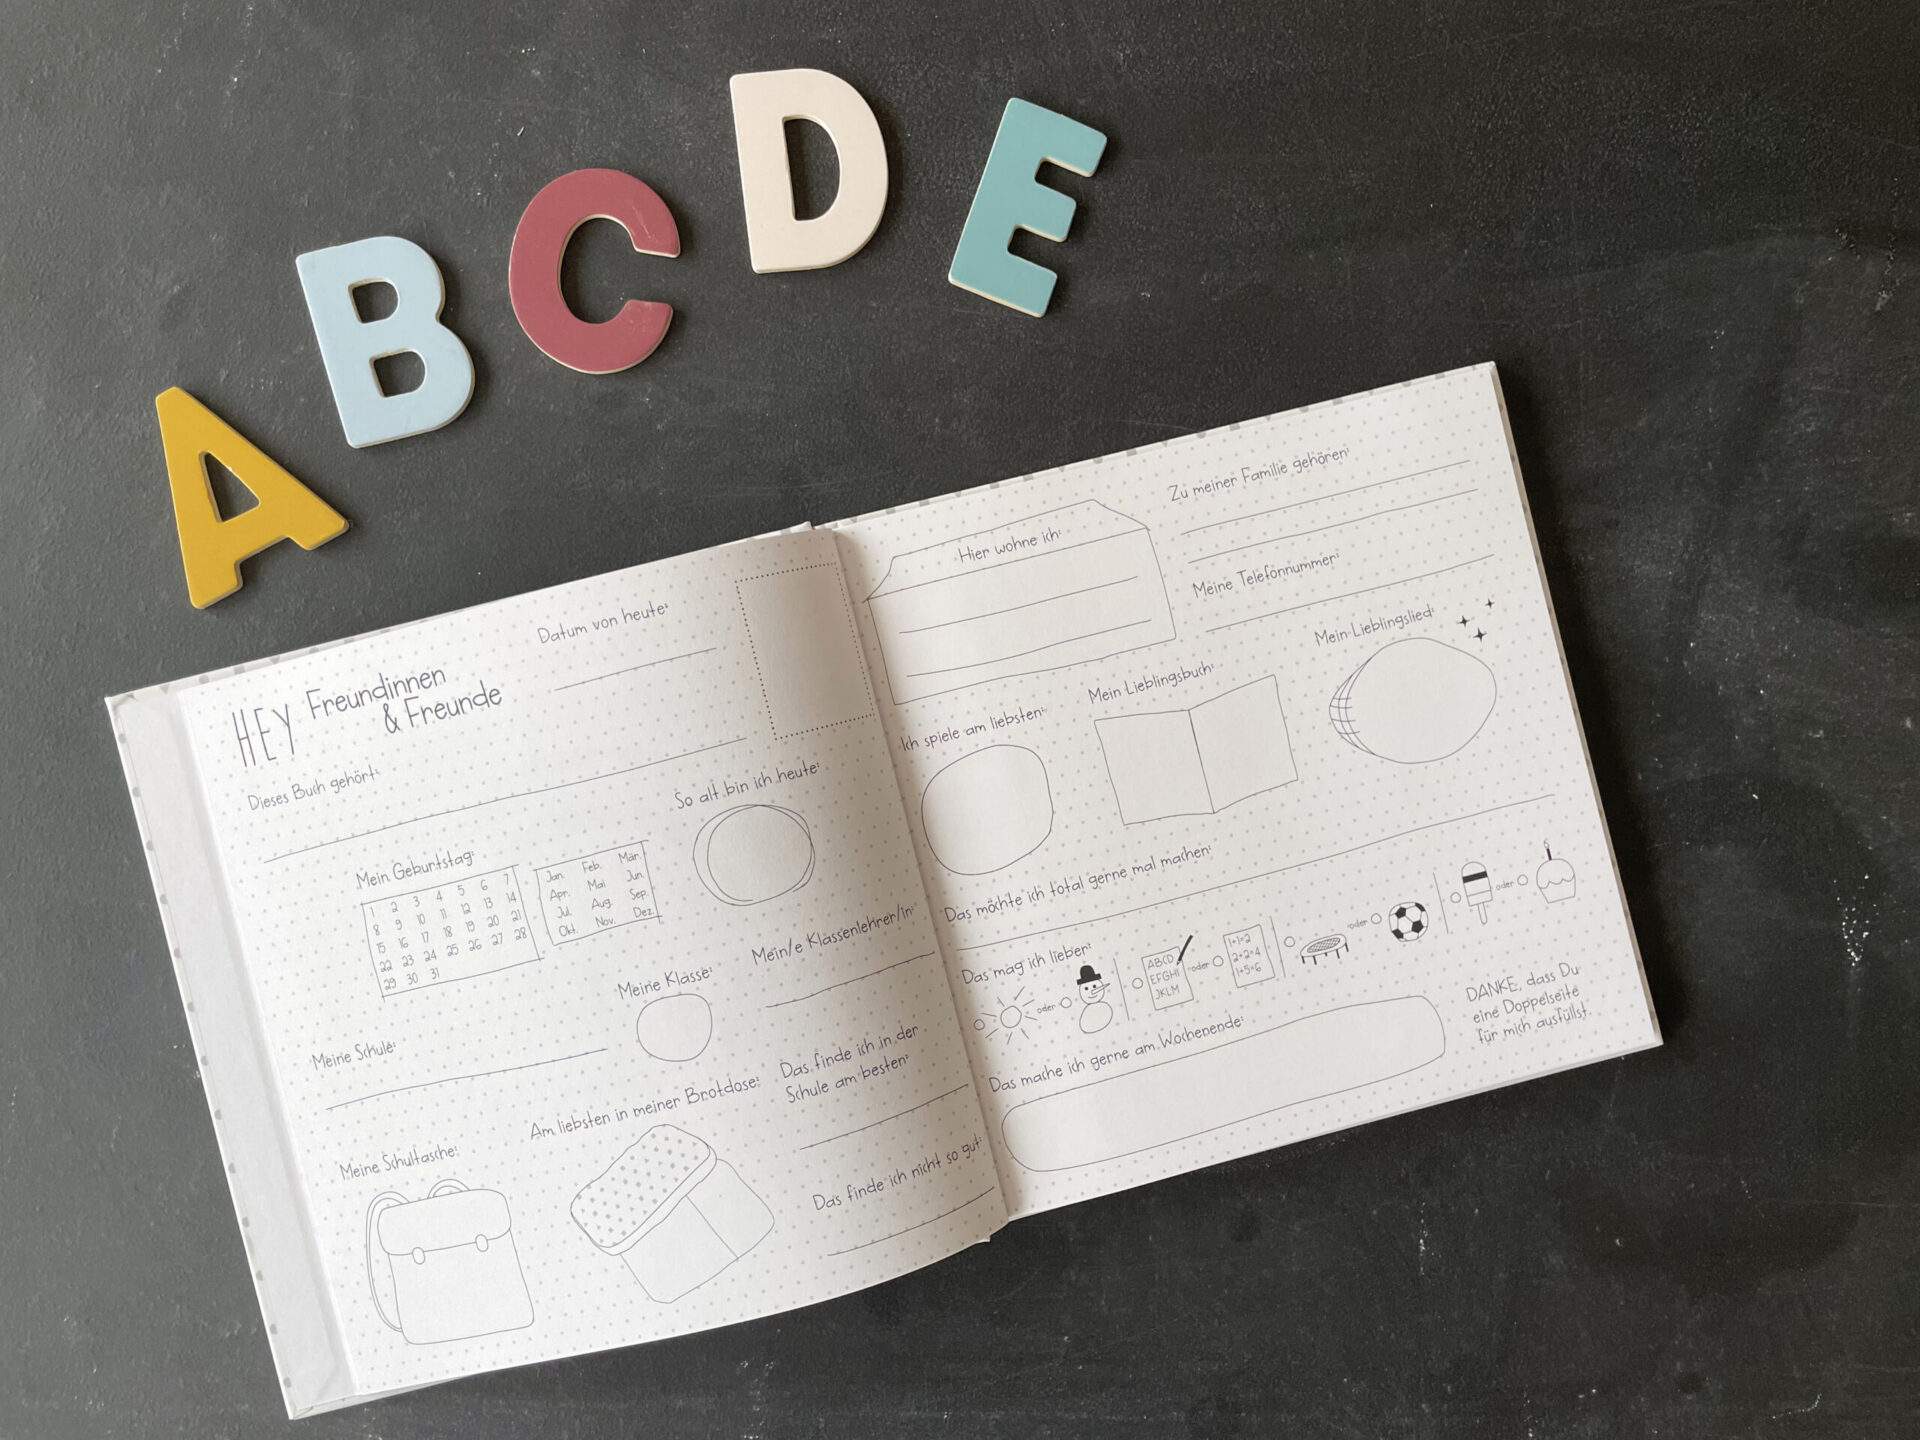 A B C D E
HEY Freundinnen
& Freunde
Datum von heute:
Dieses Buch gehört:
Mein Geburtstag:
1 2 3 4 5 6 7
8 9 10 11 12 13 14
15 16 17 18 19 20 21
22 23 24 25 26 27 28
29 30 31
Jan. Feb. Mär.
Apr. Mai Jun.
Jul. Aug. Sep.
Okt. Nov. Dez.
So alt bin ich heute:
Meine Schule:
Meine Klasse:
Mein/e Klassenlehrer/in:
Meine Schultasche:
Am liebsten in meiner Brotdose:
Das finde ich in der
Schule am besten:
Das finde ich nicht so gut:
Hier wohne ich:
Zu meiner Familie gehören:
Meine Telefonnummer:
Ich spiele am liebsten:
Mein Lieblingsbuch:
Mein Lieblingslied:
Das möchte ich total gerne mal machen:
Das mag ich lieber:
oder
ABCD
EFGHI
JKLM
oder
1+1=2
2+2=4
1+5=6
oder
oder
Das mache ich gerne am Wochenende:
DANKE, dass Du
eine Doppelseite
für mich ausfüllst.